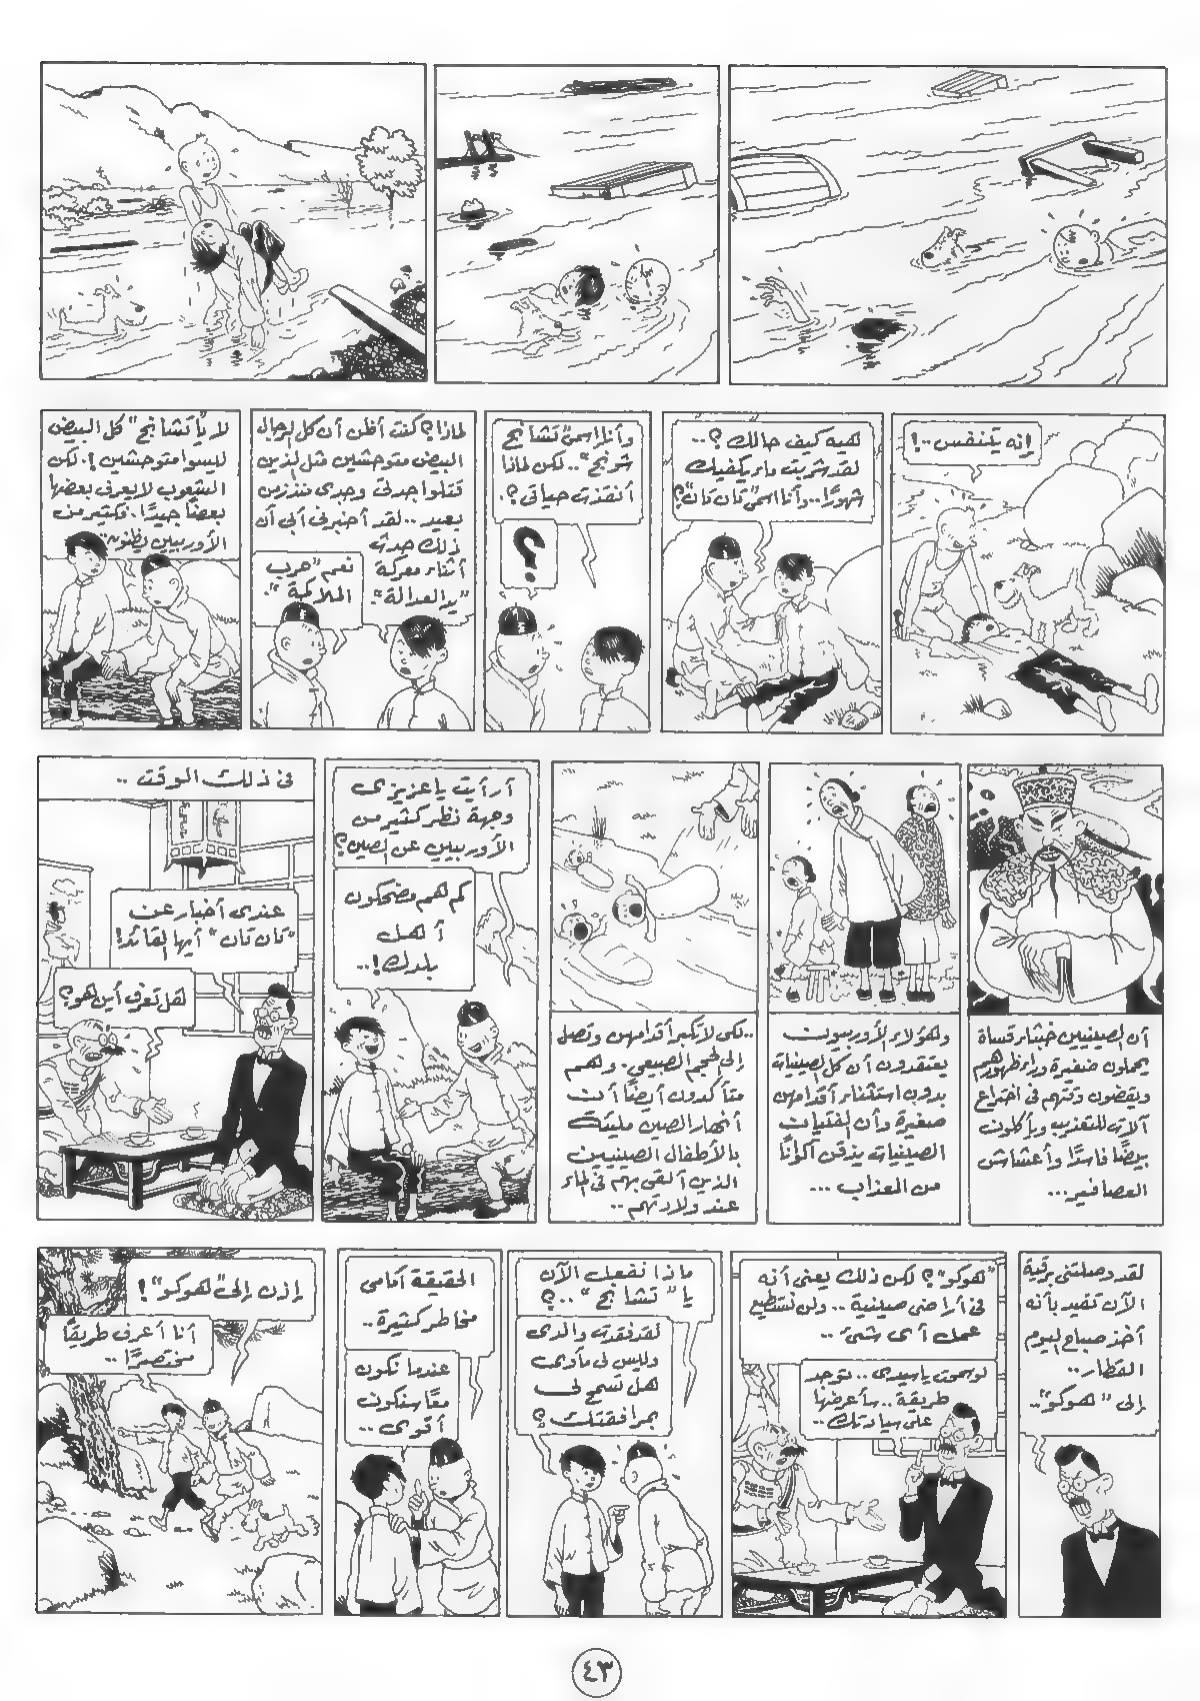 إنه يتنفس ..!
هيه كيف حالك ؟..
لقد شربت ماء يكفيك
شهورًا.. وأنا اسمى "تان تان"؟
وأنا اسمى "تشانج
شونج".. لكن لماذا
أنقذت حياتى ؟.
؟
لماذا؟ كنت أظن أن كل الرجال
البيض متوحشين مثل الذين
قتلوا جدتى وجدى منذ زمن
بعيد .. لقد أخبرنى أبى أن
ذلك حدث
أثناء معركة
"يد العدالة".
نعم "حرب
الملاكمة".
لا يا "تشانج" كل البيض
ليسوا متوحشين !. لكن
الشعوب لا يعرف بعضها
بعضًا جيدًا. فكثير من
الأوربيين يظنون..
أن الصينيين خبثاء قساة
يحملون ضفيرة وراء ظهورهم
ويقضون وقتهم فى اختراع
آلات للتعذيب ويأكلون
بيضًا فاسدًا وأعشاش
العصافير...
وهؤلاء الأوربيون
يعتقدون أن كل الصينيات
بدون استثناء أقدامهن
صغيرة وأن الفتيات
الصينيات يذقن ألوانًا
من العذاب ...
..لكى لا تكبر أقدامهن وتصل
إلى الحجم الطبيعى. وهم
متأكدون أيضًا أن
أنهار الصين مليئة
بالأطفال الصينيين
الذين ألقى بهم فى الماء
عند ولادتهم ..
أرأيت يا عزيزى
وجهة نظر كثير من
الأوربيين عن الصين؟
كم هم مضحكون
أهل
بلدك!..
فى ذلك الوقت ..
عندى أخبار عن
"تان تان" أيها القائد!
هل تعرف أين هو؟
لقد وصلتنى برقية
الآن تفيد بأنه
أخذ صباح اليوم
القطار..
إلى "هوكو"..
"هوكو"؟ لكن ذلك يعنى أنه
فى أراضى صينية .. ولن نستطيع
عمل أى شئ ..
لو سمحت يا سيدى .. توجد
طريقة .. سأعرضها
على سيادتك ..
ماذا نفعل الآن
يا "تشانج" ..؟
لقد فقدت والدى
وليس لى مأوى
هل تسمح لى
بمرافقتك ؟
الحقيقة أمامى
مخاطر كثيرة ..
عندما نكون
معًا سنكون
أقوى ..
إذن إلى "هوكو" !
أنا أعرف طريقًا
مختصرًا ..
٤٣